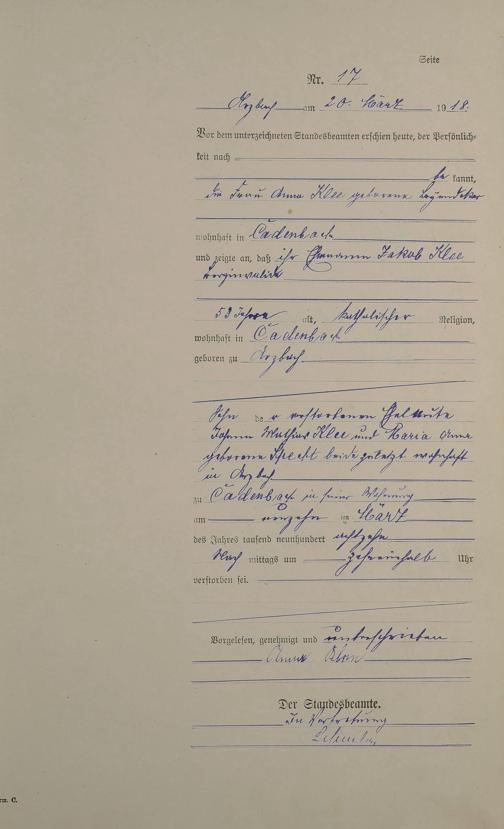 Seite
Nr. 17
Arzbach am 20. März 1918.
Vor dem unterzeichneten Standesbeamten erschien heute, der Persönlich-
keit nach
be kannt,
die Frau Anna Klee geborene
wohnhaft in Cadenbach
und zeigte an, daß ihr Ehemann Jakob Klee
Berginvalide
53 Jahre alt, katholischer Religion,
wohnhaft in Cadenbach
geboren zu Arzbach
Sohn der verstorbenen Eheleute
Johann Mathias Klee und Maria Anna
geborene beide zuletzt wohnhaft
in Arzbach
zu Cadenbach in seiner Wohnung
am neunzehn ten März
des Jahres tausend neunhundert achtzehn
Nach mittags um zehneinhalb Uhr
verstorben sei.
Vorgelesen, genehmigt und unterschrieben
Anna Klee
Der Standesbeamte.
In Vertretung
rm. C.